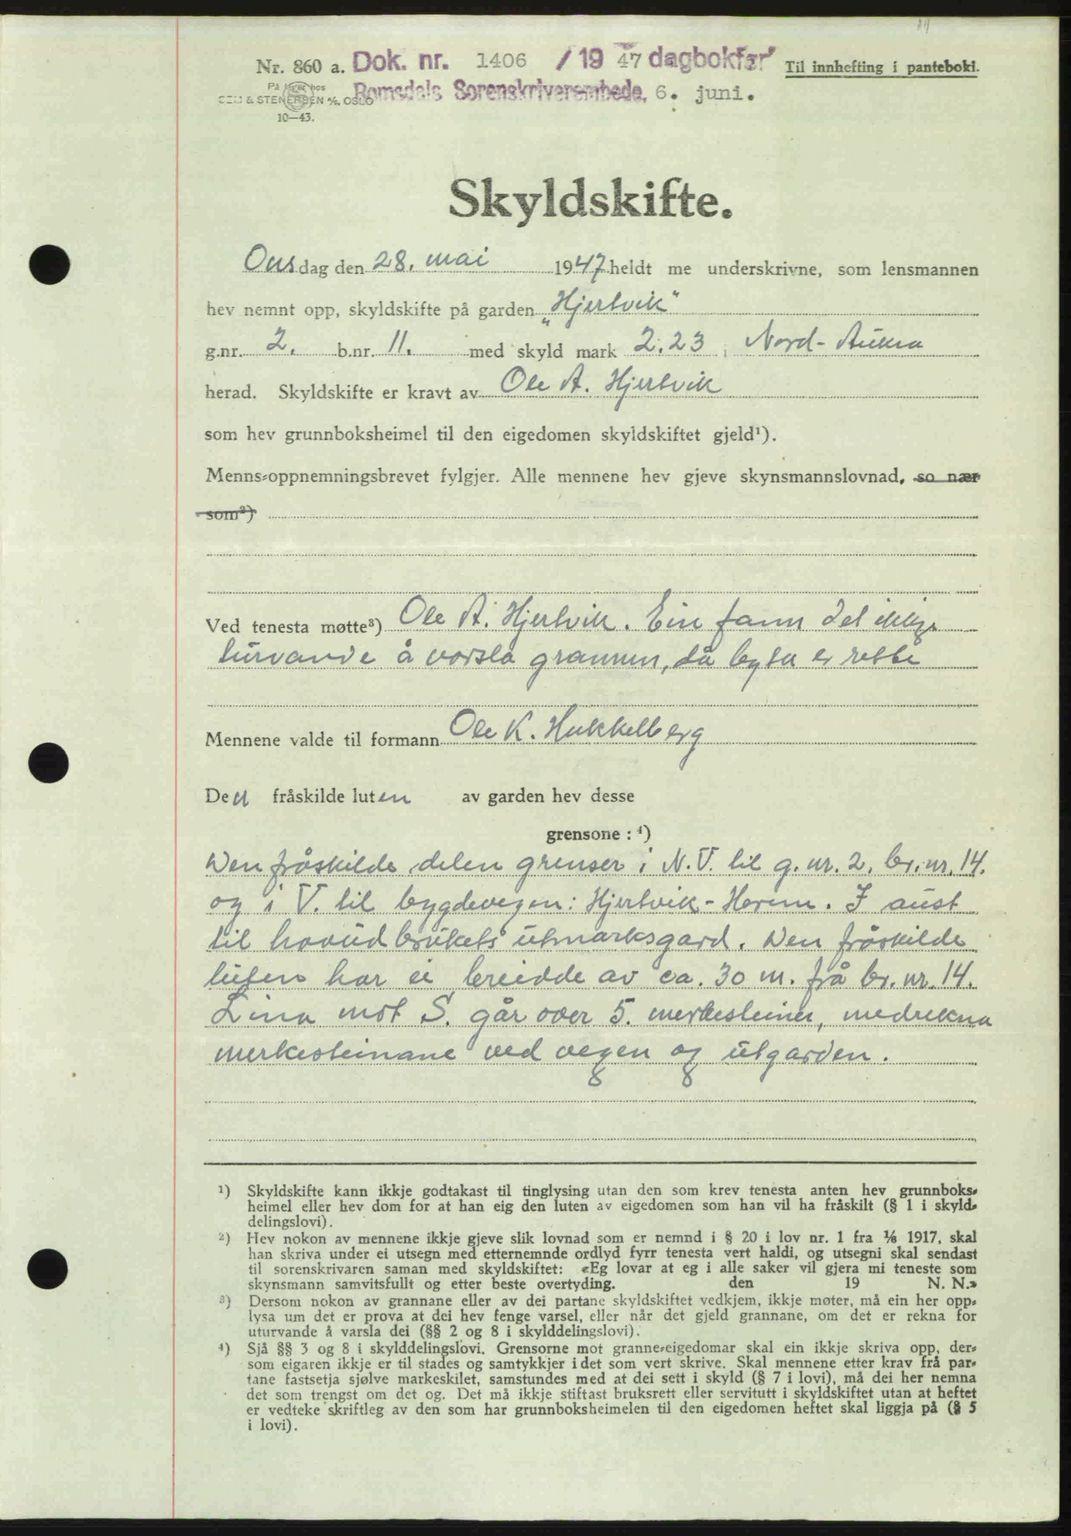 Nr. 860 a. Dok. nr. 1406 / 19 47 dagbokført Til innhefting i pantebok.
På lager hos Romsdals Sorenskriverembede, 6. juni.
SEM & STENERSEN A/S. OSLO
10—43.
Skyldskifte.
Onsdag den 28. mai 1947 heldt me underskrivne, som lensmannen
hev nemnt opp, skyldskifte på garden „Hjertvik“
g.nr. 2. b.nr. 11. med skyld mark 2.23 i Nord-Aukra
herad. Skyldskifte er kravt av Ole A. Hjertvik
som hev grunnboksheimel til den eigedomen skyldskiftet gjeld¹).
Menns-oppnemningsbrevet fylgjer. Alle mennene hev gjeve skynsmannslovnad, so nær
som²)
Ved tenesta møtte³) Ole A. Hjertvik. Ein fann det ikkje
turvande å varsla grannen, då byta er rette
Mennene valde til formann Ole K. Hukkelberg
Den fråskilde luten av garden hev desse
grensone : ⁴)
Den fråskilde delen grenser i N.V. til g.nr. 2, br.nr. 14.
og i V. til bygdevegen: Hjertvik - Horem. I aust
til hovudbrukets utmarksgard. Den fråskilde
luten har ei breidde av ca. 30 m. frå br.nr. 14.
Lina mot S. går over 5. merkesteiner, medrekna
merkesteinane ved vegen og utgarden.
¹) Skyldskifte kann ikkje godtakast til tinglysing utan den som krev tenesta anten hev grunnboks-
heimel eller hev dom for at han eig den luten av eigedomen som han vil ha fråskilt (§ 1 i skyld-
delingslovi).
²) Hev nokon av mennene ikkje gjeve slik lovnad som er nemnd i § 20 i lov nr. 1 fra ⅛ 1917, skal
han skriva under ei utsegn med etternemnde ordlyd fyrr tenesta vert haldi, og utsegni skal sendast
til sorenskrivaren saman med skyldskiftet: «Eg lovar at eg i alle saker vil gjera mi teneste som
skynsmann samvitsfullt og etter beste overtyding. den 19 N. N.»
³) Dersom nokon av grannane eller av dei partane skyldskiftet vedkjem, ikkje møter, må ein her opp-
lysa um det er prova at dei hev fenge varsel, eller når det gjeld grannane, om det er rekna for
uturvande å varsla dei (§§ 2 og 8 i skylddelingslovi).
⁴) Sjå §§ 3 og 8 i skylddelingslovi. Grensorne mot granne-eigedomar skal ein ikkje skriva opp, der-
som eigaren ikkje er til stades og samtykkjer i det som vert skrive. Skal mennene etter krav frå par-
tane fastsetja sjølve markeskilet, samstundes med at dei sett i skyld (§ 7 i lovi), må dei her nemna
det som trengst om det og. Det må ikkje stiftast bruksrett eller servitutt i skyldskiftet utan at heftet
er vedteke skriftleg av den som har grunnboksheimelen til den eigedomen heftet skal liggja på (§ 5
i lovi).